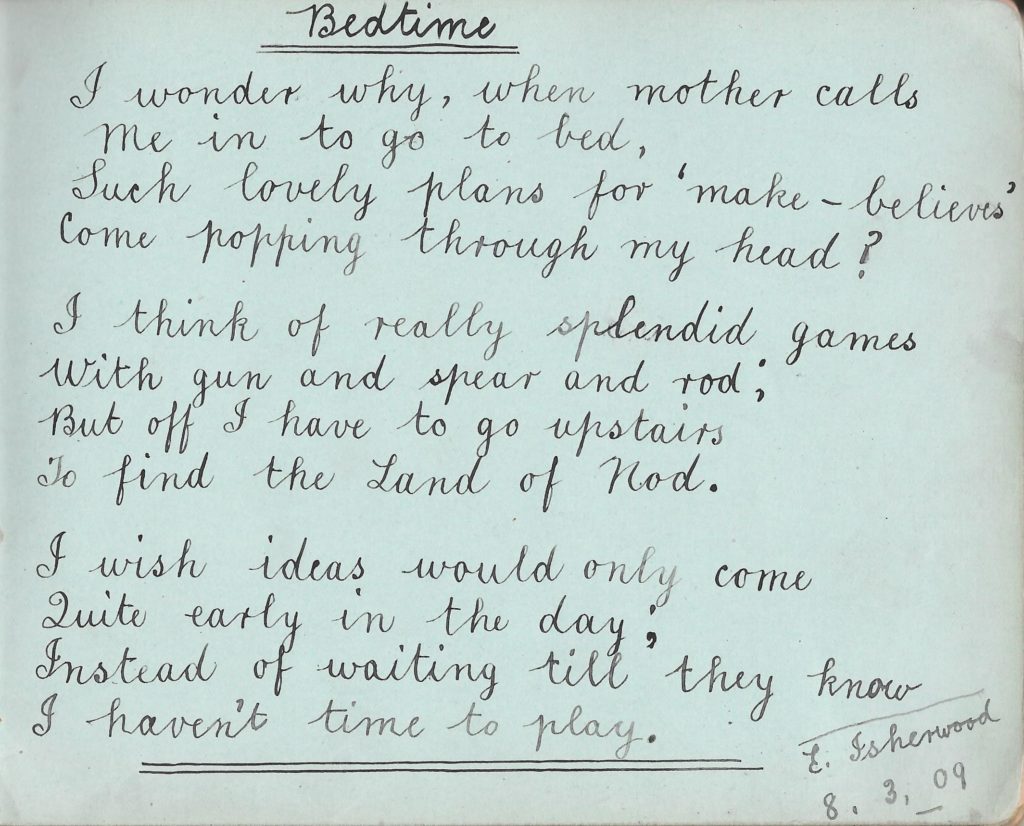 Bedtime
I wonder why, when mother calls
Me in to go to bed,
Such lovely plans for 'make-believes'
Come popping through my head?
I think of really splendid games
With gun and spear and rod;
But off I have to go upstairs
To find the Land of Nod.
I wish ideas would only come
Quite early in the day;
Instead of waiting till they know
I haven't time to play.
E. Isherwood
8. 3. 09